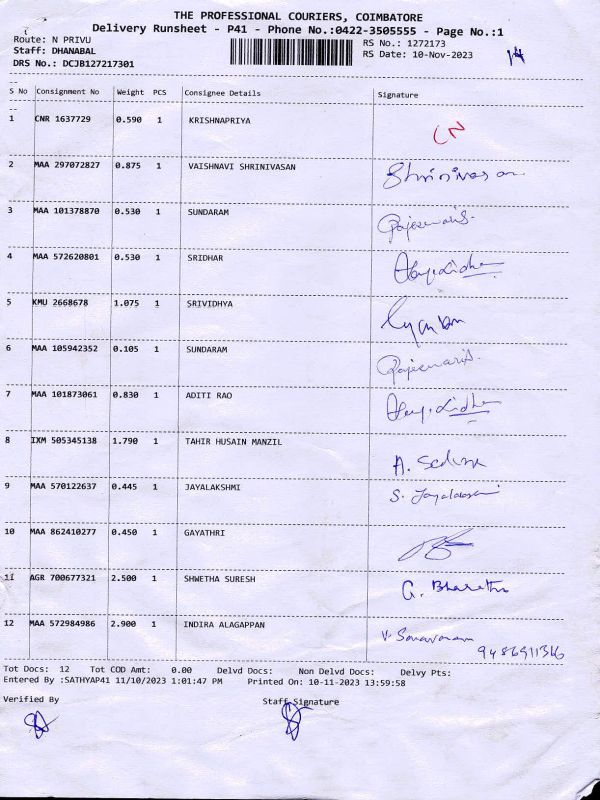 THE PROFESSIONAL COURIERS, COIMBATORE
Delivery Runsheet - P41 - Phone No.:0422-3505555 - Page No.:1
Route: N PRIVU RS No.: 1272173
Staff: DHANABAL RS Date: 10-Nov-2023
DRS No.: DCJB127217301
S No Consignment No Weight PCS Consignee Details Signature
1 CNR 1637729 0.590 1 KRISHNAPRIYA CN
2 MAA 297072827 0.875 1 VAISHNAVI SHRINIVASAN Shrinivasan
3 MAA 101378870 0.530 1 SUNDARAM
4 MAA 572620801 0.530 1 SRIDHAR
5 KMU 2668678 1.075 1 SRIVIDHYA
6 MAA 105942352 0.105 1 SUNDARAM
7 MAA 101873061 0.830 1 ADITI RAO
8 IXM 505345138 1.790 1 TAHIR HUSAIN MANZIL A.
9 MAA 570122637 0.445 1 JAYALAKSHMI S.
10 MAA 862410277 0.450 1 GAYATHRI
11 AGR 700677321 2.500 1 SHWETHA SURESH G. Bharathi
12 MAA 572984986 2.900 1 INDIRA ALAGAPPAN V.
Tot Docs: 12 Tot COD Amt: 0.00 Delvd Docs: Non Delvd Docs: Delvy Pts:
Entered By :SATHYAP41 11/10/2023 1:01:47 PM Printed On: 10-11-2023 13:59:58
Verified By Staff Signature